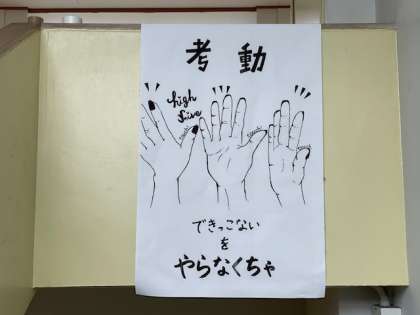 考動
high
five
できっこない
を
やらなくちゃ